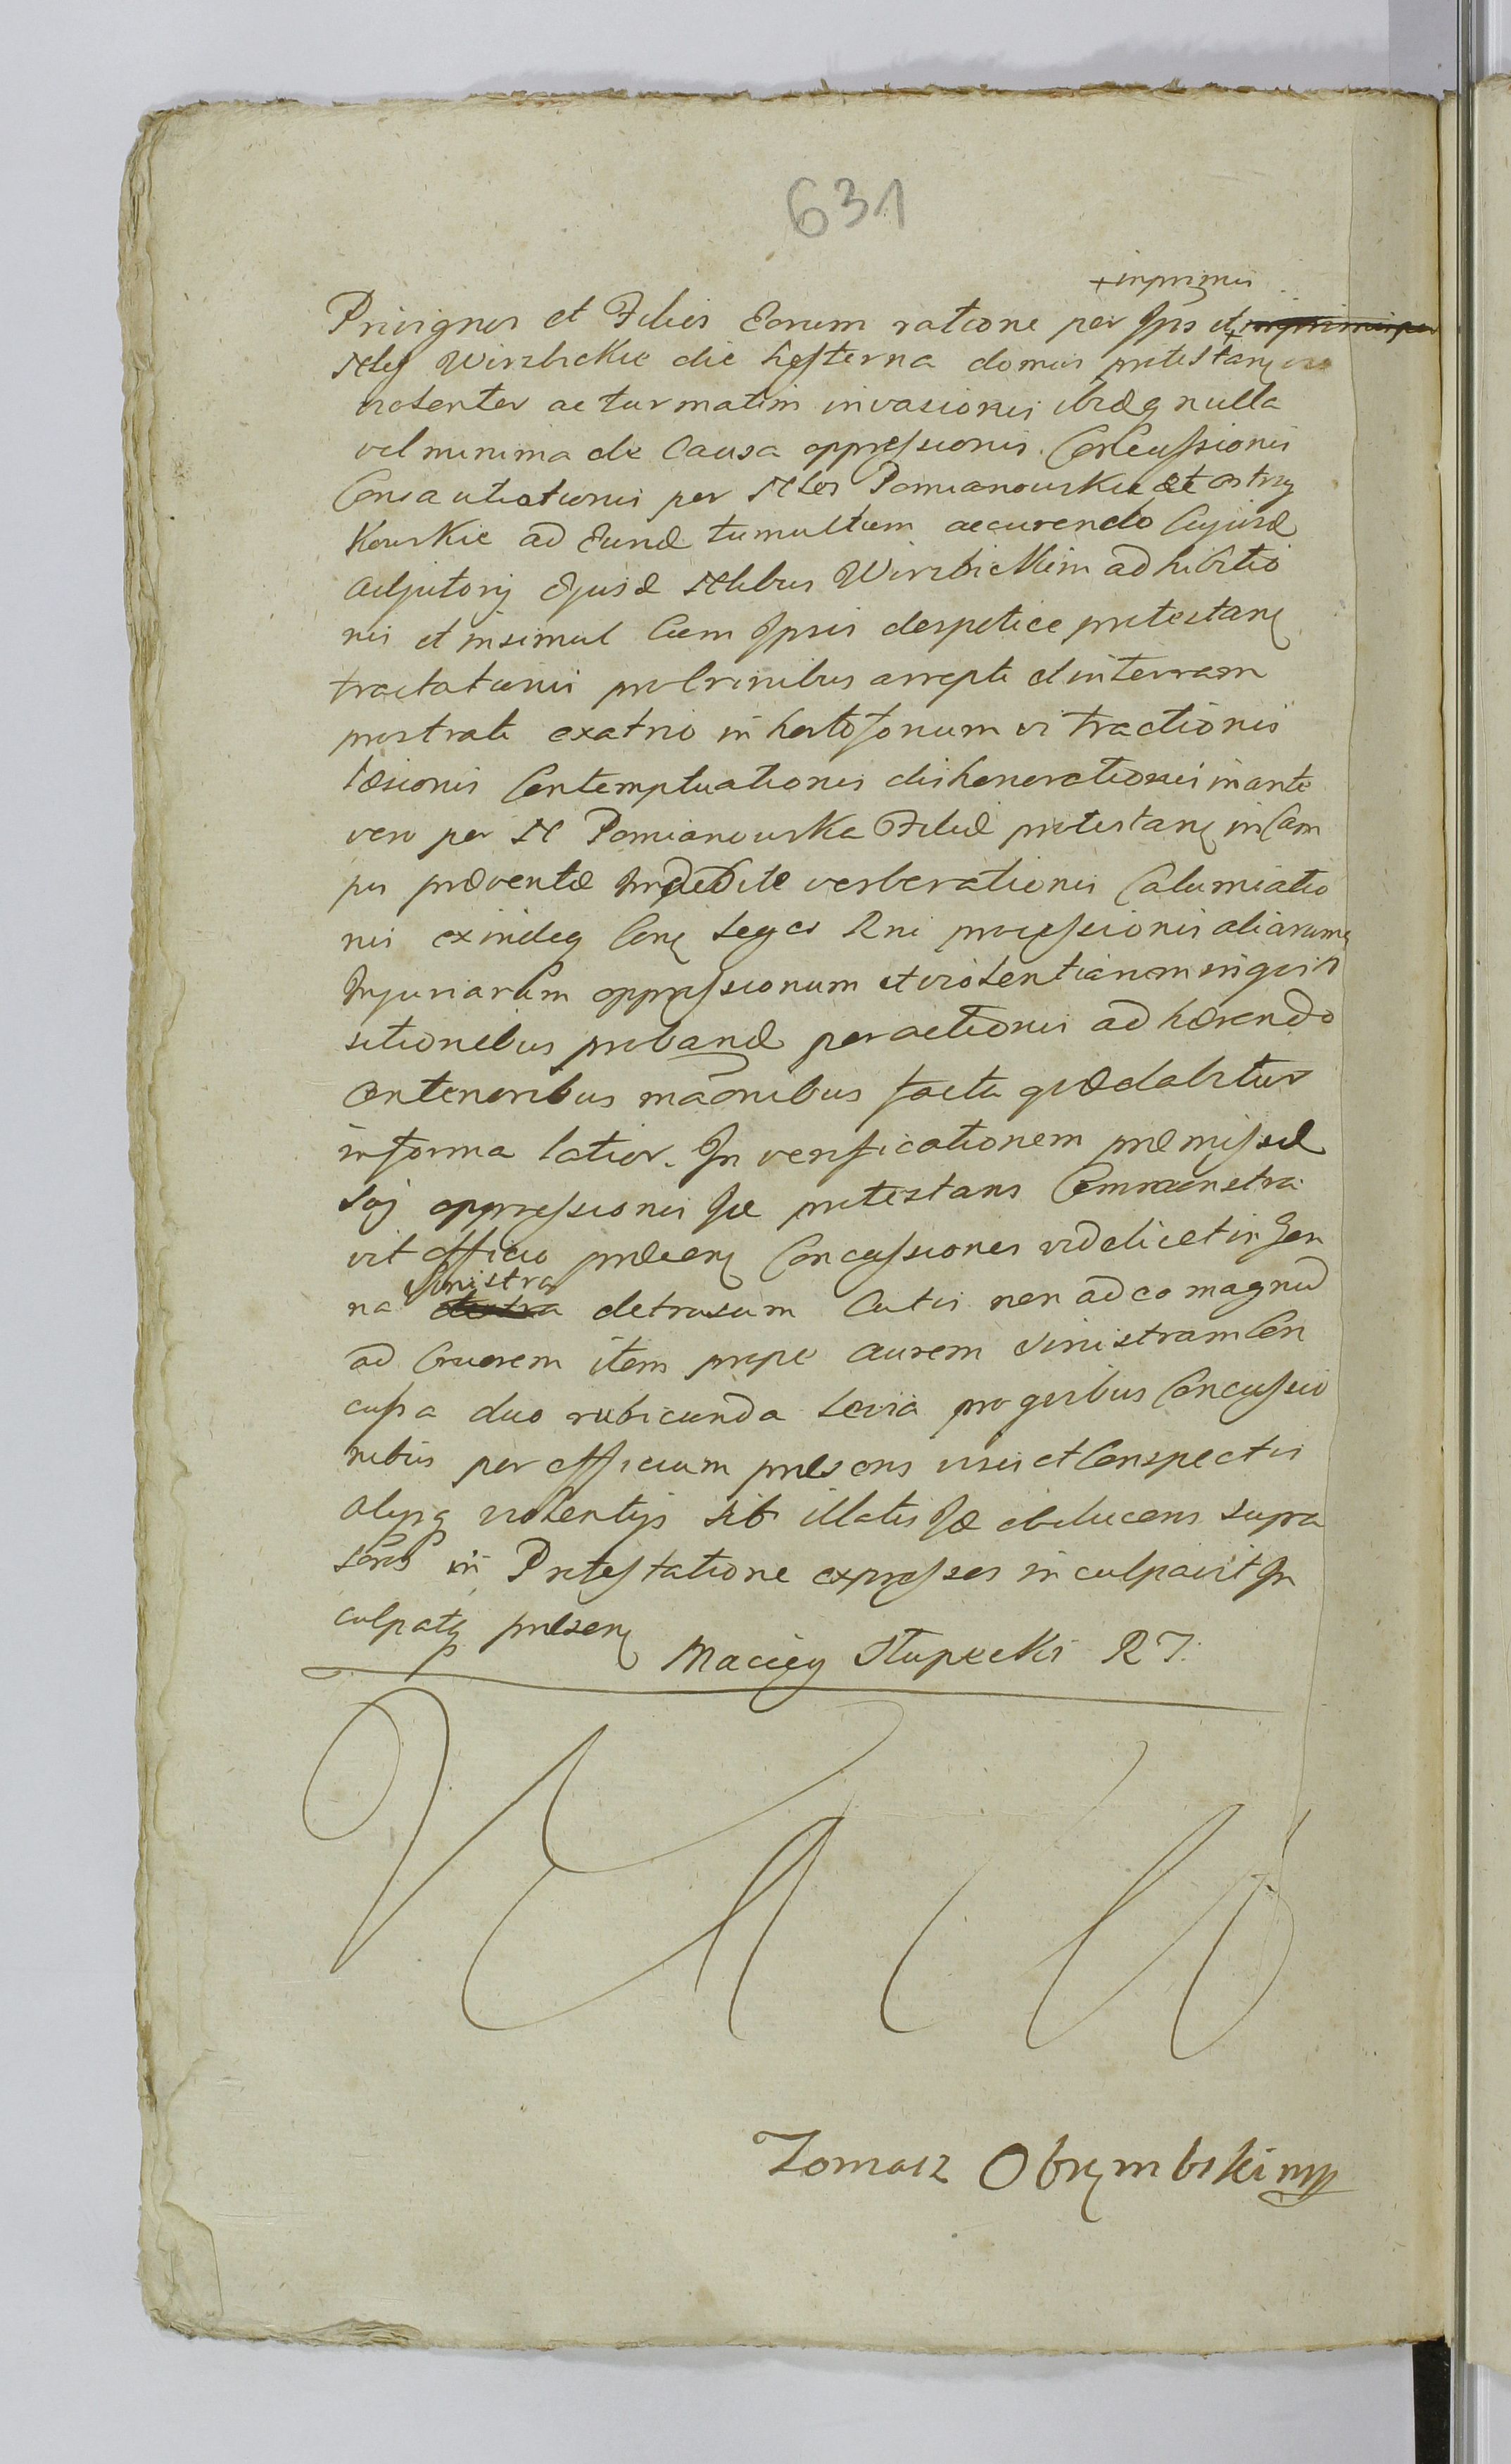 631
+ inprimis
Privignos et Filios Eorum ratione per Ips et +
Nles Wirzbickie die hesterna domus protestan
violenter ac turmatim invasionis ibidq nulla
vel minima de Causa oppressionis Concussionis
per Nles Pomianowskie et ostrzy
kowskie ad Eund tumultum accurendo Cujusd
adjutorij Ejusd Nlibus Wirzbickim adhibitio
nis et insimul Cum Ipsis despotice protestanę
tractationis pro Crinibus arrepte et in terram
prostrate ex atrio in hostosonum
læsionis Contemptuationis dishonorationis in ante
vero per N Pomianowska Filid protestanę in Cam
pis præventæ verberationis Calumiatio
nis exindeq Conę Leges Rni processionis aliarumę
Injuriarum oppressionum et violentiarum inqui
sitionibus proband peractionis ad hærendo
anterioribus maonibus facta quædabitur
in forma latior. In verificationem præmissæ
Sıj oppressionis se protestans Comraonstra
vit officio præsenę Concussiones videlicet in Gen
na sinistra detrusum Cutis non adeo magnud
ad Cruorem item prope aurem sinistram Con
cussa duo rubicunda Levia pro quibus Concussio
nibus per officium præsens visis et Conspectis
alijsq violentijs sib illatis se abducens supra
in Protestatione expressos inculpavit In
culpatq præsenę
Maciey Słupecki RT.
Tomasz Obrymbski mp